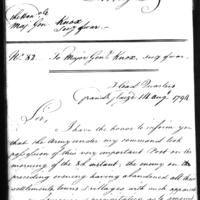 The Hon'ble
Maj. Gen. Knox
Secy of war.
No. 83. To Major Genl. Knox, Secy of war.
Head Quarters
Grand Glaize 14 Augt. 1794
Sir,
I have the honor to inform you
that the Army under my command took
possession of this very important Post on the
morning of the 8th instant, the enemy on the
preceding evening having abandoned all their
settlements towns & villages with such apparent